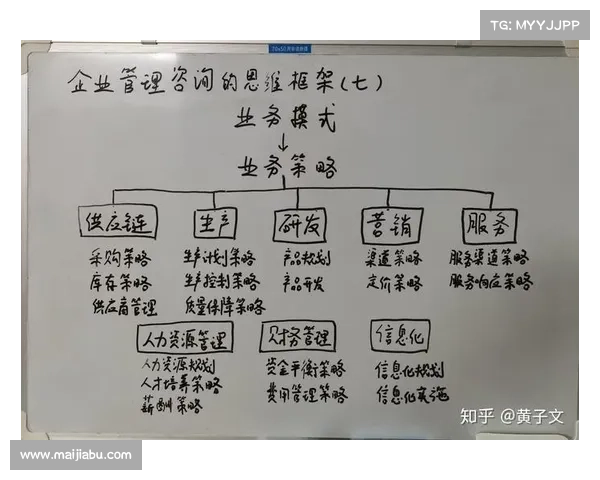 TG: MYYJJPP
70x50
企业管理咨询的思维框架(七)
业务模式
↓
业务策略
供应链 生产 研发 营销 服务
采购策略 生产计划策略 产品规划 渠道策略 服务渠道策略
库存策略 生产控制策略 产品开发 定价策略 服务响应策略
供应商管理 质量保障策略
人力资源管理 财务管理 信息化
人力资源规划 资金平衡策略 信息化规划
人才培养策略 费用管理策略 信息化实施
薪酬策略
知乎 @黄子文
www.maijiabu.com